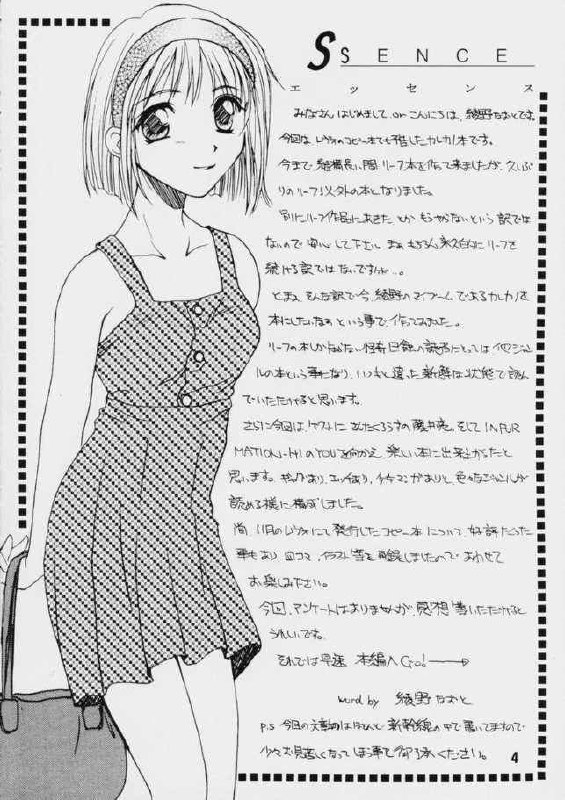 SSENCE
エッセンス
みなさんはじめまして、or こんにちは、綾野なおとです。
今回は レヴォのコピー本でも 出したカレカノ本です。
今まで 結構長い間 リーフ本を作って来ましたが、久しぶ
りのリーフ以外の本となりました。
別にリーフ作品にあきた とか もうやらないという訳では
ないので 安心して下さい。まぁ もちろん 永久的に リーフを
続ける訳ではないですが…。
とまぁ、そんな訳で今、綾野の マイブーム であるカレカノを
本にしたいなぁ という事で、作ってみました。
リーフの本しか 知らない 読者にとっては 他ジャン
ルの本という事になり、いつもと違った 新鮮な 状態で 読ん
でいただけると思います。
さらに今回は、ゲストに 藤井 、そして INFOR
MATION-HI の YOU を 迎え、楽しい本に 出来上がったと
思います。 あり、 あり、4コママンガ ありと 色々なジャンルが
読める様に 構成しました。
尚、11月のレヴォにて 発行した コピー本について 好評だった
事もあり、四コマ、イラスト等を 再録しましたので あわせて
お楽しみ下さい。
今回、アンケートは ありませんが、感想 書いていただけると
うれしいです。
それでは早速 本編へ Go! →
word by 綾野 なおと
P.S 今回の文章は 新幹線の中で 書いてますので
少々 お見苦しくなってしまう事を 御了承ください。
4